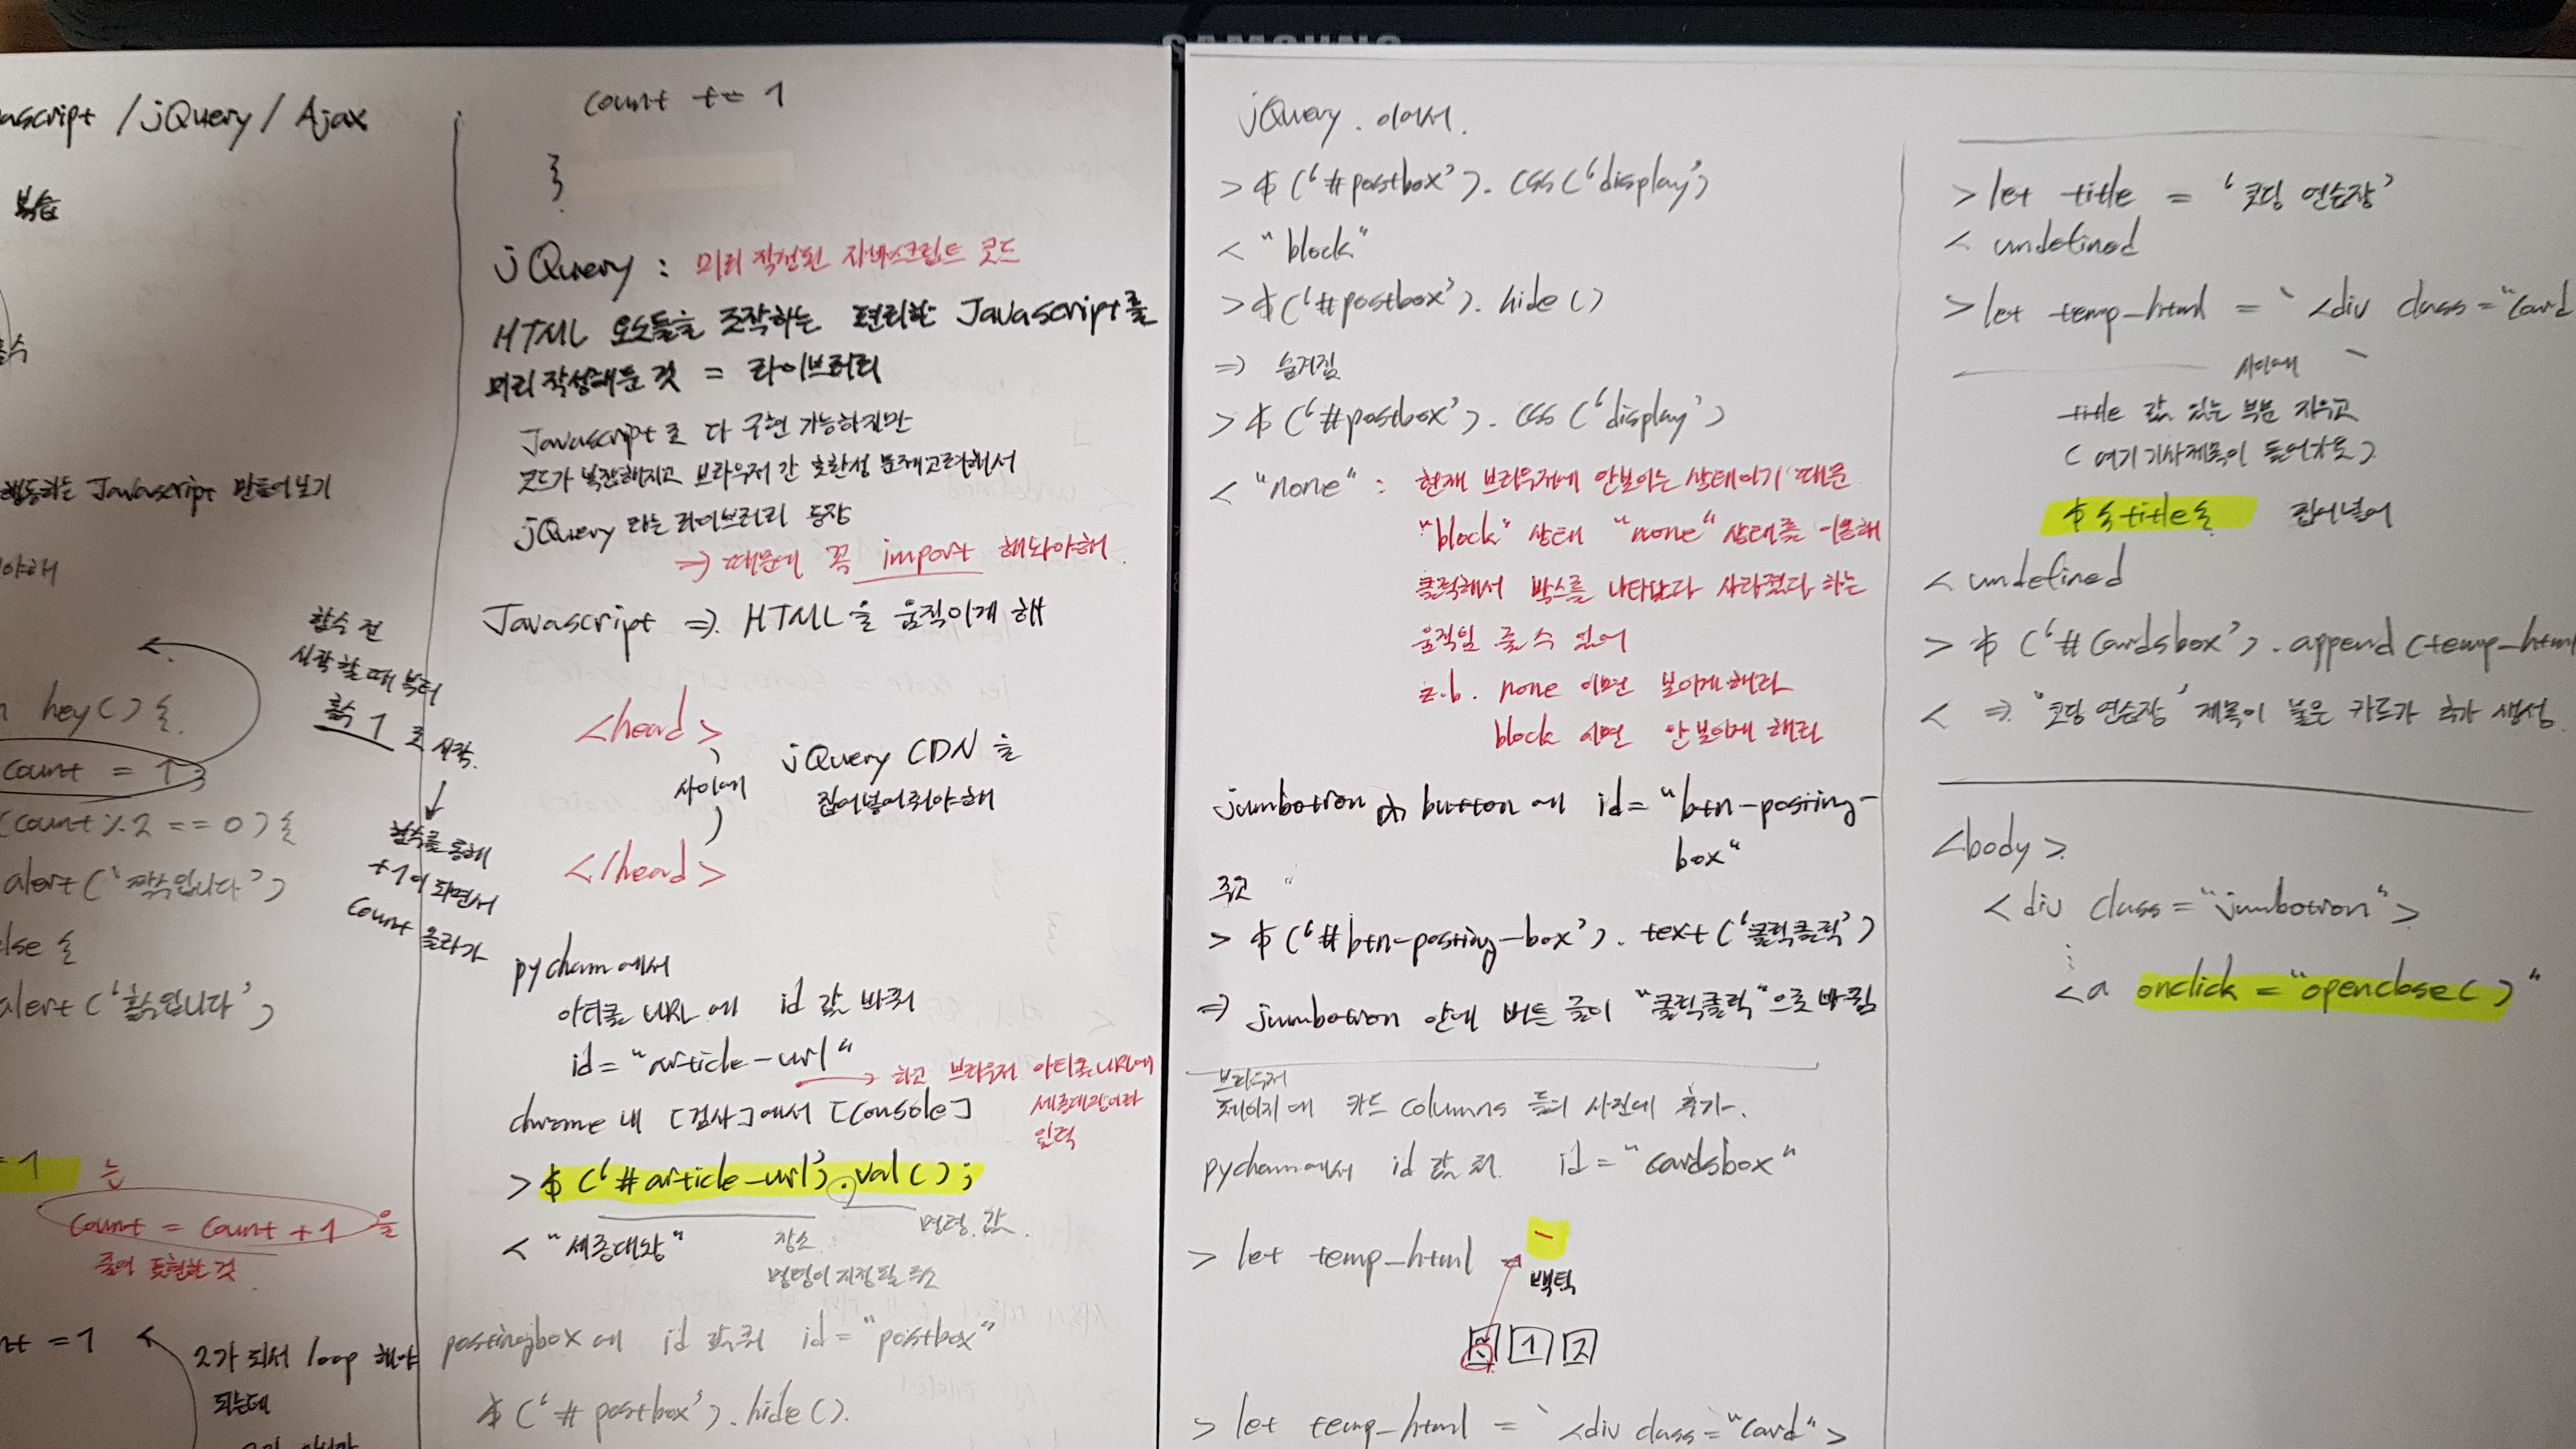 SAMSUNG
ascript / jQuery / Ajax
복습
행동하는 Javascript 만들어보기
야해
함수 전
시작할 때 부터
홀수 1 로 시작.
hey() {
count = 1;
(count % 2 == 0) {
alert('짝수입니다')
lse {
alert('홀수입니다');
함수를 통해
+1이 되면서
count 올라가
= 1 는
count = count + 1 을
줄여 표현한 것.
nt = 1
2가 되서 loop 해야
되는데
count += 1
}
jQuery : 미리 작성된 자바스크립트 코드
HTML 요소들을 조작하는 편리한 Javascript를
미리 작성해둔 것 = 라이브러리
Javascript로 다 구현 가능하지만
코드가 복잡해지고 브라우저 간 호환성 문제고려해서
jQuery 라는 라이브러리 등장
⇒ 때문에 꼭 import 해놔야해.
Javascript ⇒ HTML을 움직이게 해
<head>
사이에
jQuery CDN 을
집어넣어줘야해
</head>
pycham에서
아티클 URL에 id 값 바꿔
id = "article-url"
→ 하고 브라우저 아티클URL에
세종대왕이라
입력
chrome 내 [검사]에서 [Console]
> $('#article-url').val();
장소
명령이 지정될 주소
명령. 값.
< "세종대왕"
postingbox에 id 값줘 id="postbox"
$('#postbox').hide().
jQuery. 이어서.
> $('#postbox').css('display')
< "block"
> $('#postbox').hide()
⇒ 숨겨짐
> $('#postbox').css('display')
< "none" : 현재 브라우저에 안보이는 상태이기 때문
"block" 상태 "none" 상태를 이용해
클릭해서 박스를 나타났다 사라졌다 하는
움직임 줄 수 있어
z.b. none 이면 보이게해라
block 이면 안보이게 해라
jumbotron 內 button에 id="btn-posting-
box"
주고
> $('#btn-posting-box').text('클릭클릭')
⇒ jumbotron 안에 버튼 글이 "클릭클릭"으로 바뀜
브라우저
페이지에 카드 columns 들의 사진에 추가.
pycham에서 id 값 줘. id="cardsbox"
> let temp_html = `
백틱
~ ` 1 2
> let temp_html = ` <div class="card">
> let title = '코딩 연습장'
< undefined
> let temp_html = ` <div class="card
사이에 `
title 값 있는 부분 지우고
(여기 기사제목이 들어가죠)
${title} 집어넣어
< undefined
> $('#cardsbox').append(temp_html
< ⇒ '코딩 연습장' 제목이 붙은 카드가 추가 생성.
<body>
<div class="jumbotron">
⋮
<a onclick="openclose()"